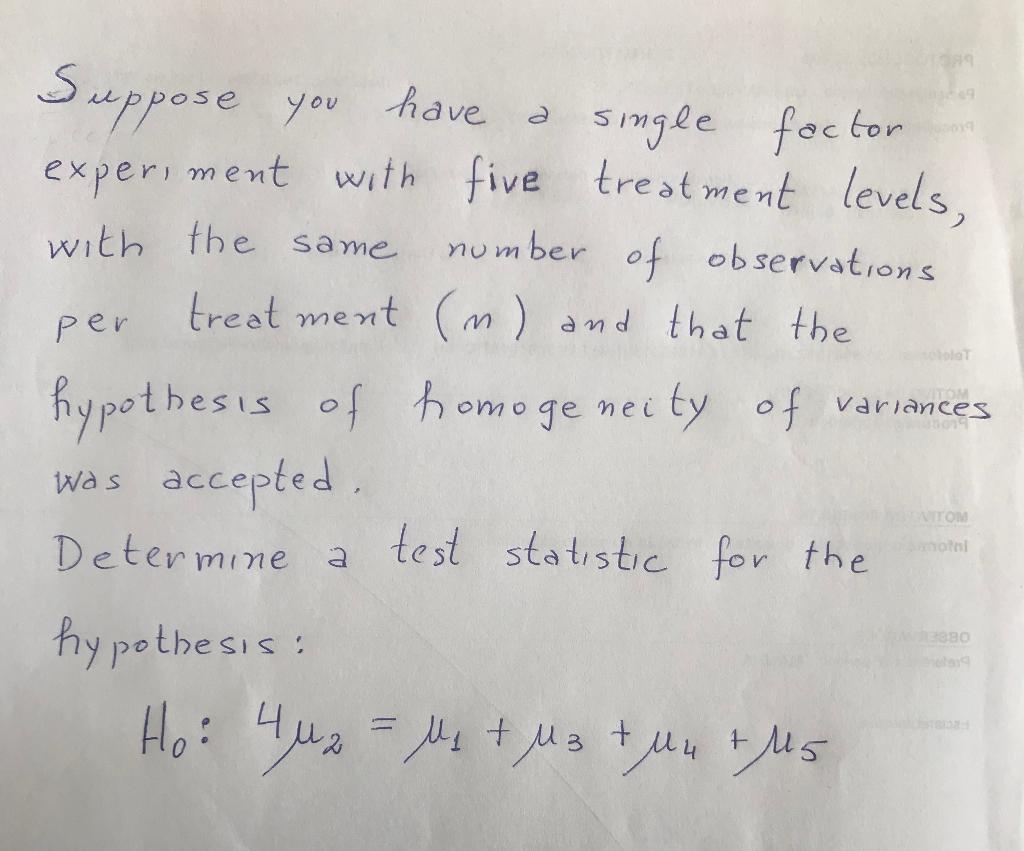 Suppose you have a single factor
experiment with five treatment levels,
with the same number of observations
per treatment (n) and that the
hypothesis of homogeneity of variances
was accepted.
Determine a test statistic for the
hypothesis:
H₀: 4μ₂ = μ₁ + μ₃ + μ₄ + μ₅